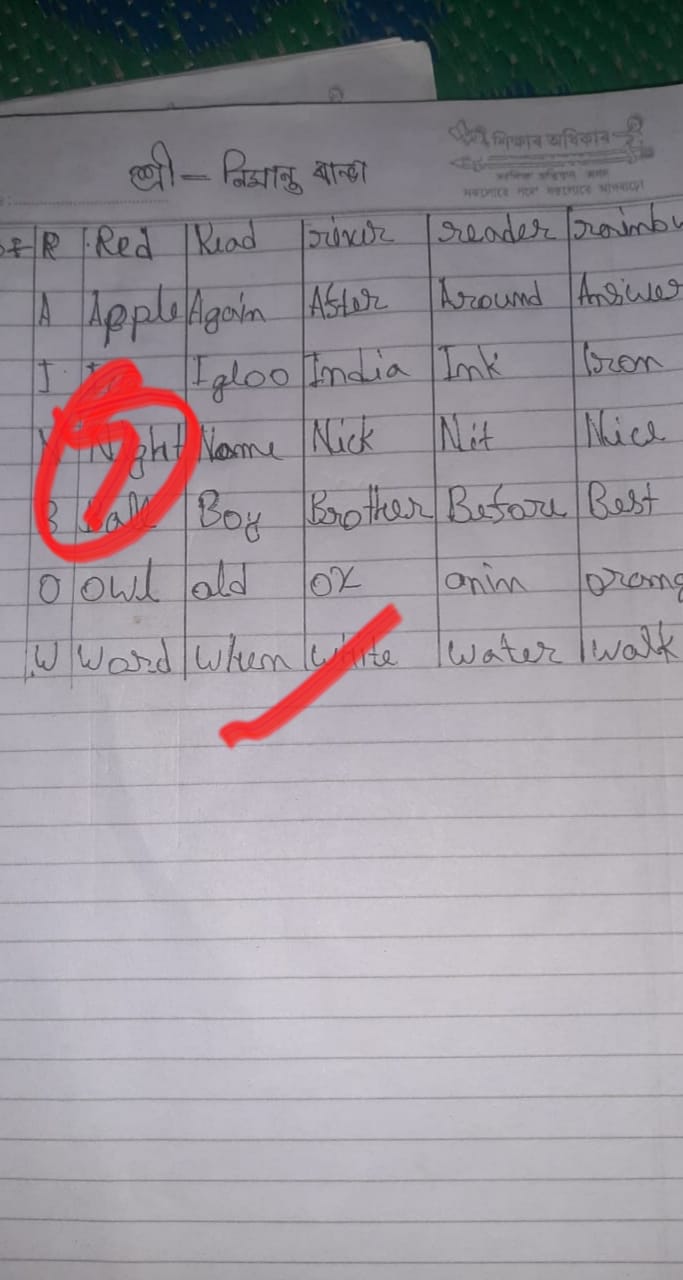 श्री – विमानु वान्डा
R Red Read river reader rainbu
A Apple Again After Around Answer
I Igloo India Ink Iron
N Night Name Nick Nit Nice
B Ball Boy Brother Before Best
O Owl old ox onin orang
W Word When White Water Walk
5